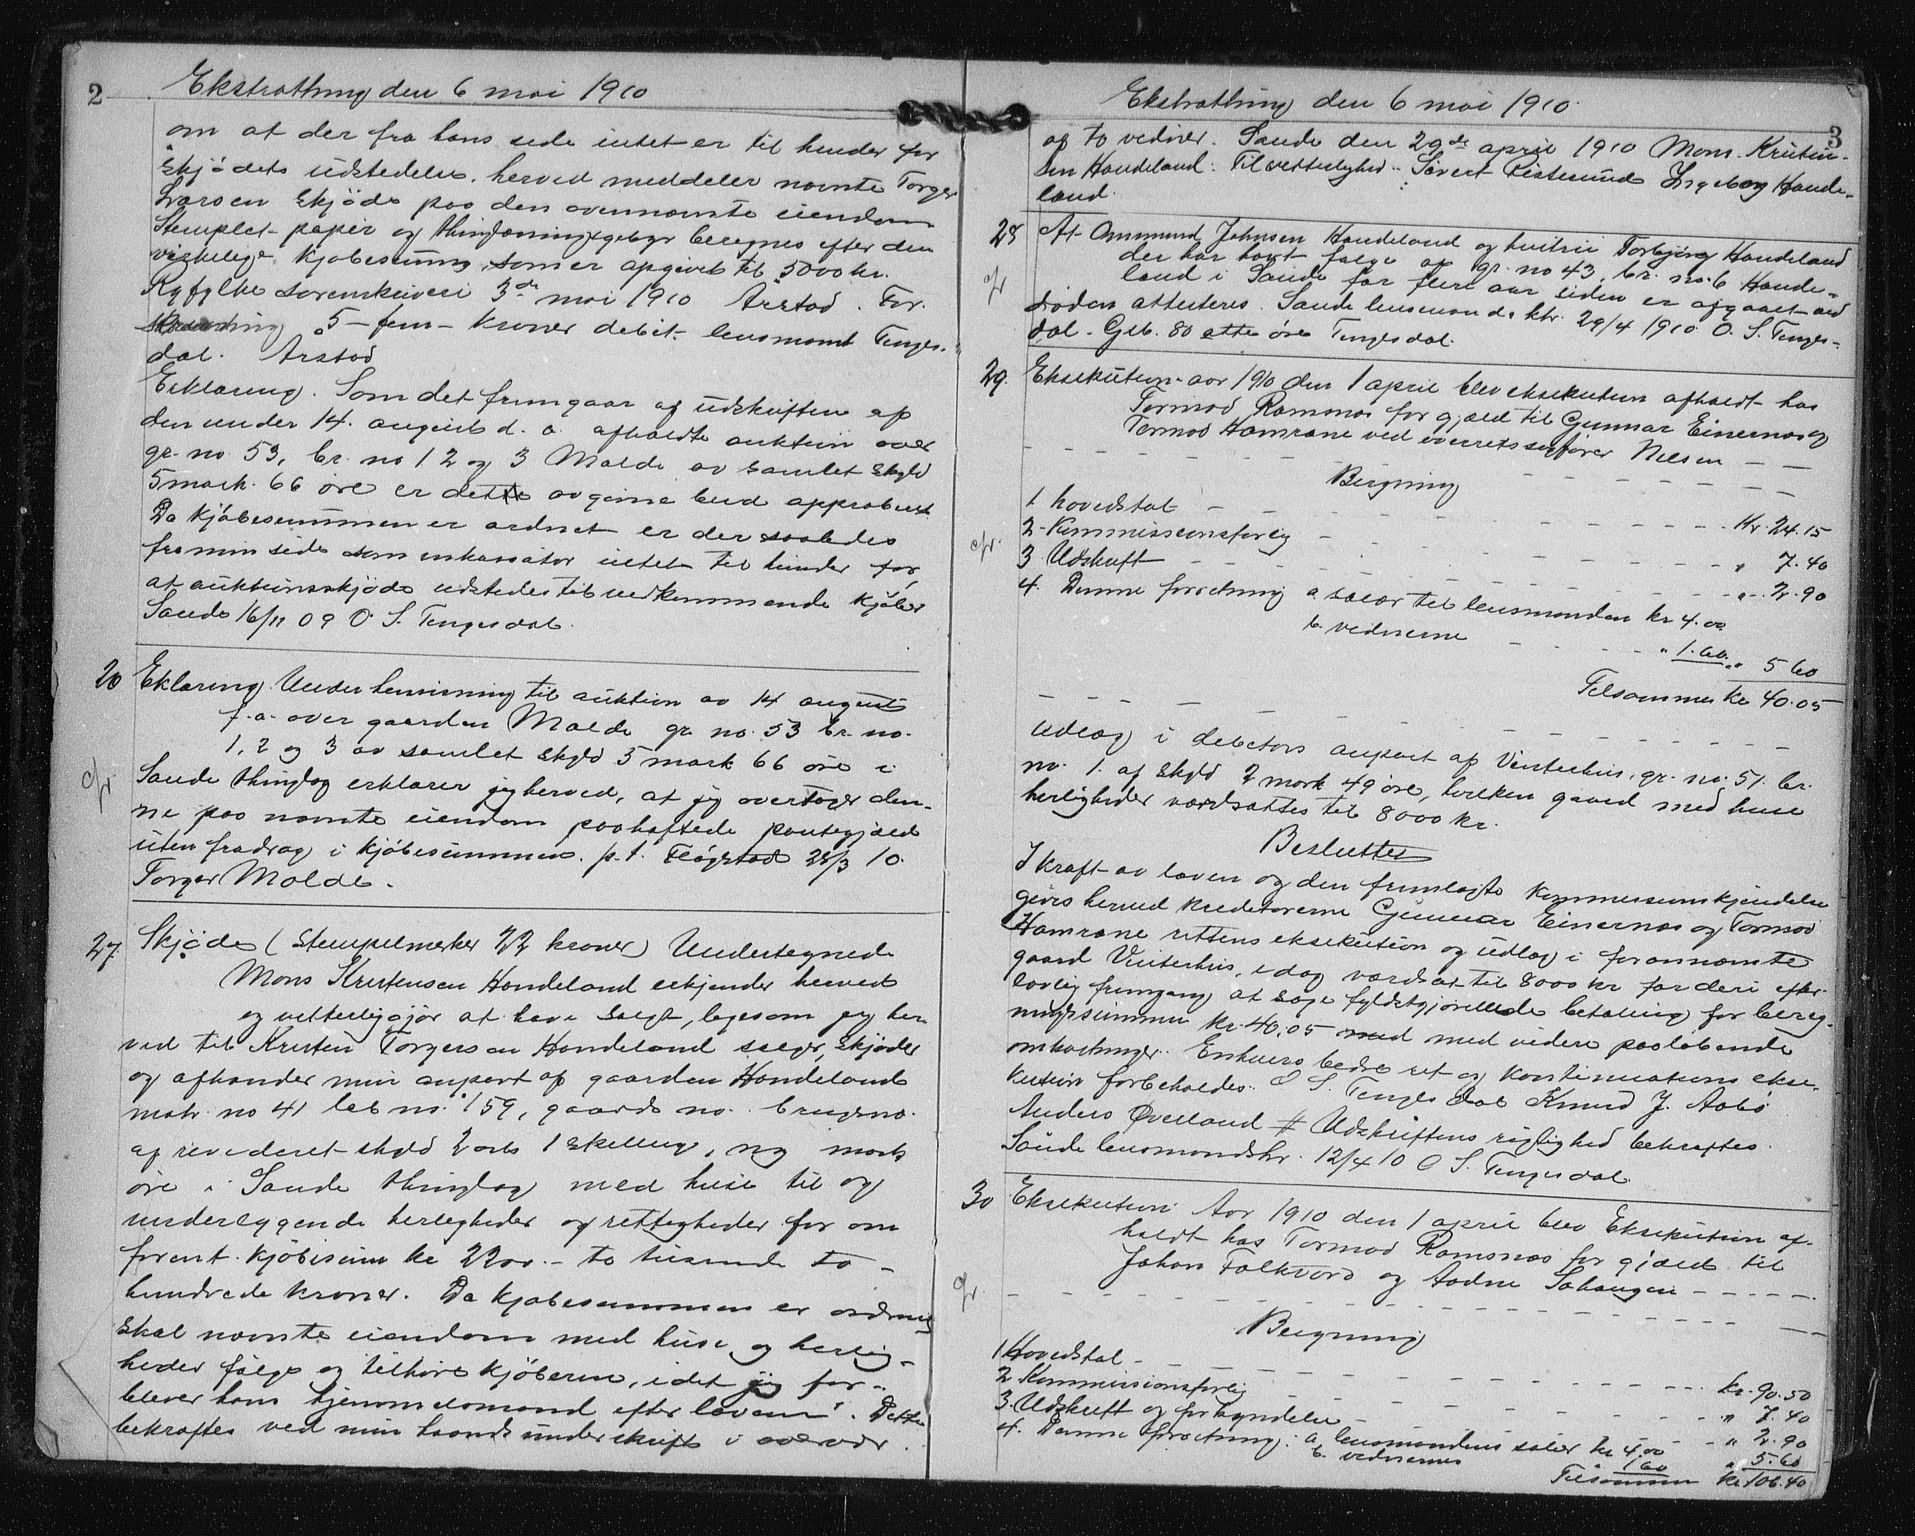 2
Ekstrathing den 6 mai 1910
om at der fra hans side intet er til hinder for
skjødets udstedelse, herved meddeler nævnte Torger
Larsen skjøde paa den ovennævnte eiendom
Stemplet papir og thinglæsningsgebyr beregnes efter den
virkelige kjøbesum, som er opgivet til 5000 kr.
Ryfylke sorenskriveri 3de mai 1910 Aarstad. For-
5 - fem - kroner debit. lensmand Tenges-
dal. Arstad
Erklæring. Som det fremgaar af udskriften af
den under 14. august d. a. afholdte auktion over
gr. no 53, br. no 1 2 og 3 Molde av samlet skyld
5 mark 66 øre er dette avgivne bud approberet
Da kjøbesummen er ordnet er der saaledes
fra min side som inkassator intet til hinder for
at auktionsskjøde udstedes til vedkommende kjøber
Saude 16/11 09 O. S. Tengesdal.
20 Eklæring. Under henvisning til auktion av 14 august
f. a. over gaarden Molde gr. no. 53 br. no.
1, 2 og 3 av samlet skyld 5 mark 66 øre i
Saude thinglag erklærer jeg herved, at jeg overtager den-
ne paa nævnte eiendom paahæftede pantegjæld
uten fradrag i kjøbesummen. p.t. Fløgstad 28/3 10.
Torger Molde.
27. Skjøde (stempelmerker 22 kroner) Undertegnede
Mons Kristensen Handeland erkjender herved
og vetterliggjør at have solgt, ligesom jeg her-
ved til Kristen Torgersen Handeland sælger, skjøder
og afhænder min anpart af gaarden Handeland
matr. no 41 løb no. 159, gaards no. brugsno.
af revideret skyld 2 orts 1 skilling, ny mark
øre i Saude thinglag med huse til og
underliggende herligheder og rettigheder for om
forent kjøbesum kr 2200.- to tusende to-
hundrede kroner. Da kjøbesummen er ordnet
skal nævnte eiendom med huse og herlig-
heder følge og tilhøre kjøberen, idet jeg for-
bliver hans hjemmelsmand efter loven. Dette
bekræftes ved min haands underskrift i overvær
3
Ekstrathing den 6 mai 1910.
af to vidner. Saude den 29de april 1910 Mons Kristen-
sen Handeland. Til vetterlighed: Sivert Ingeborg Hande-
land.
28 At Ommund Johnsen Handeland og hustru Torbjørg Handeland
der har havt folge af gr. no 43, br. no. 6 Hande-
land i Saude for flere aar siden er afgaaet ved
døden attesteres. Saude lensmands ktr. 29/4 1910 O. S. Tenges-
dal. Geb. 80 otte øre Tengesdal.
29. Eksekution. aar 1910 den 1 april blev eksekution afholdt hos
Tormod Ramsnæs for gjæld til Gunnar Einernæs og
Tormod Hamrane ved overretssagfører Nilsen
Bergning
1 hovedstol Kr. 24.15
2. Kommissionsforlig " 7.40
3 Udskrift " 2.90
4. Denne forretning a salær til lensmanden kr 4.00
b. vidnerne " 1.60 " 5 60
Tilsammen kr 40.05
Udlæg i debitors anpart af Vinterhus, gr. no. 51. br.
no. 1. af skyld 2 mark 49 øre, hvilken gaard med huse
herligheder værdsattes til 8000 kr.
Besluttet
I kraft av loven og den fremlagte kommissionskjendelse
gives herved kreditorerne Gunnar Einernæs og Tormod
Hamrane rettens eksekution og udlæg i forannævnte
gaard Vinterhus, idag værdsat til 8000 kr for deri efter
lovlig fremgang at søge fyldestgjørende betaling for bereg-
ningssummen kr. 40.05 med videre paaløbende
omkostninger. Enhvers bedre ret og kontinuations ekse-
kution forbeholdes. O. S. Tengesdal Knud J. Aabø
Anders Øverland # Udskriftens rigtighed bekræftes.
Saude lensmandsktr. 12/4 10 O S. Tengesdal
30 Eksekution. Aar 1910 den 1 april blev Eksekution af-
holdt hos Tormod Ramsnæs for gjæld til
Johan Falkvord og Aadne Sahaugen
Bergning
1 Hovedstol kr. 90.50
2 Kommissionsforlig " 7.40
3. Udskrift og forkyndelse " 2.90
4. Denne forretning: a. lensmandens salær kr 4.00
b. vidnernes 1.60 " 5.60
Tilsammen kr 106.40